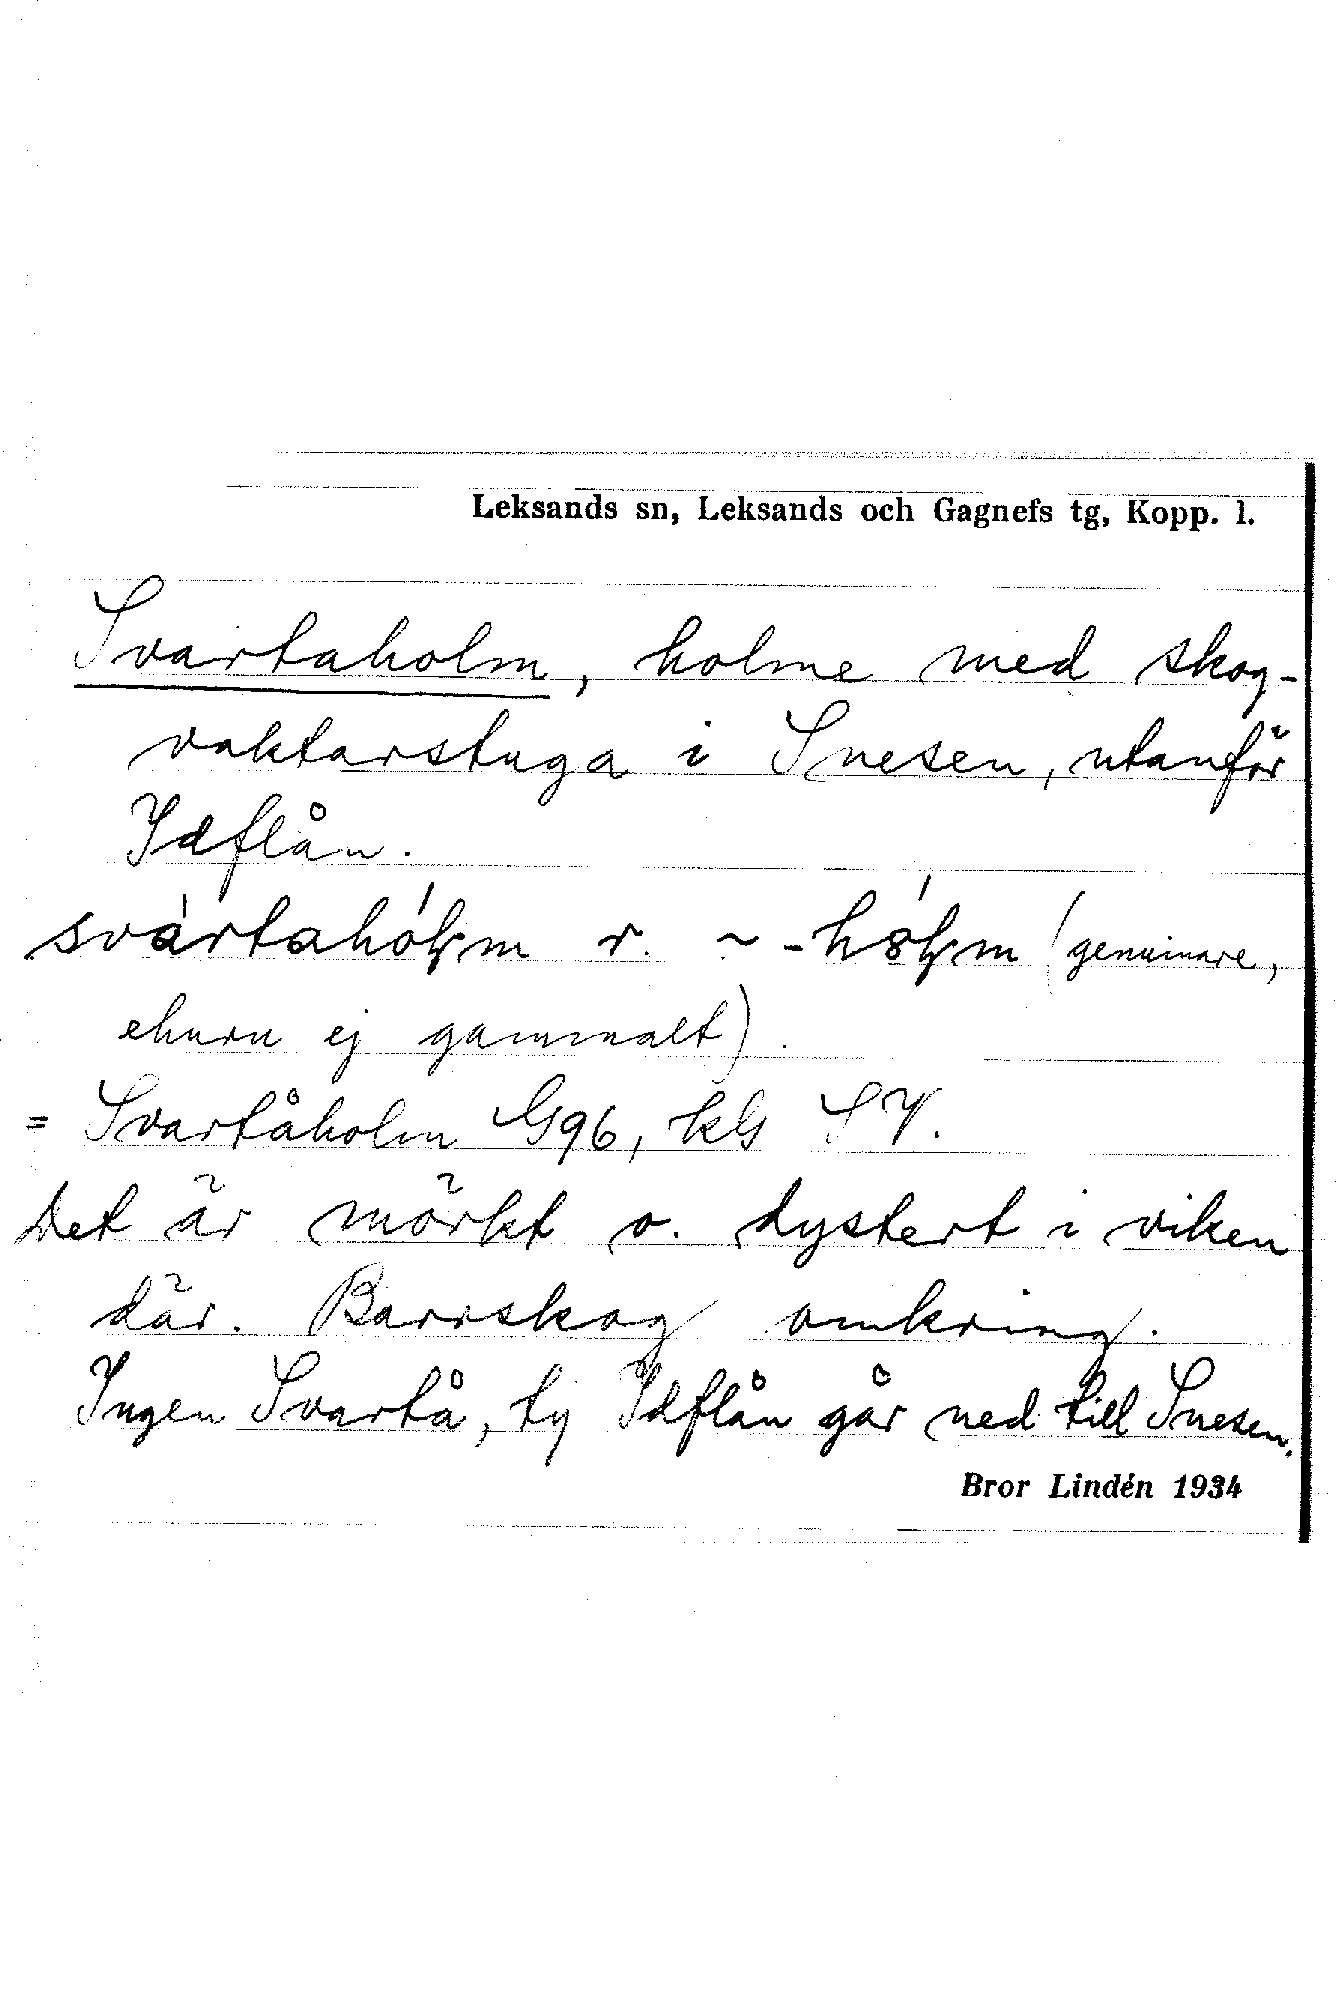 Leksands sn, Leksands och Gagnefs tg, Kopp. l.
Svartaholm, holme med skog-
vaktarstuga i Snesen, utanför
Idflån.
svàrtahóɭm r. ~ -hóɭm (genuinare,
ehuru ej gammalt).
= Svartåholm G96, kG SV.
Det är mörkt o. dystert i viken
där. Barrskog omkring.
Ingen Svartå, ty Idflån går ned till Snesen.
Bror Lindén 1934